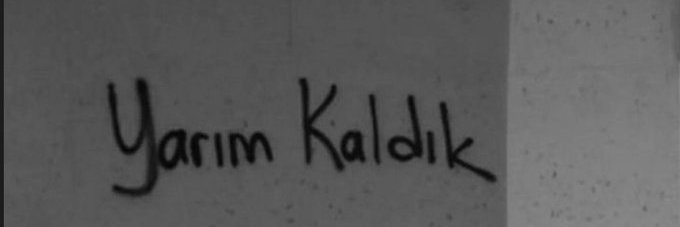 Yarım Kaldık